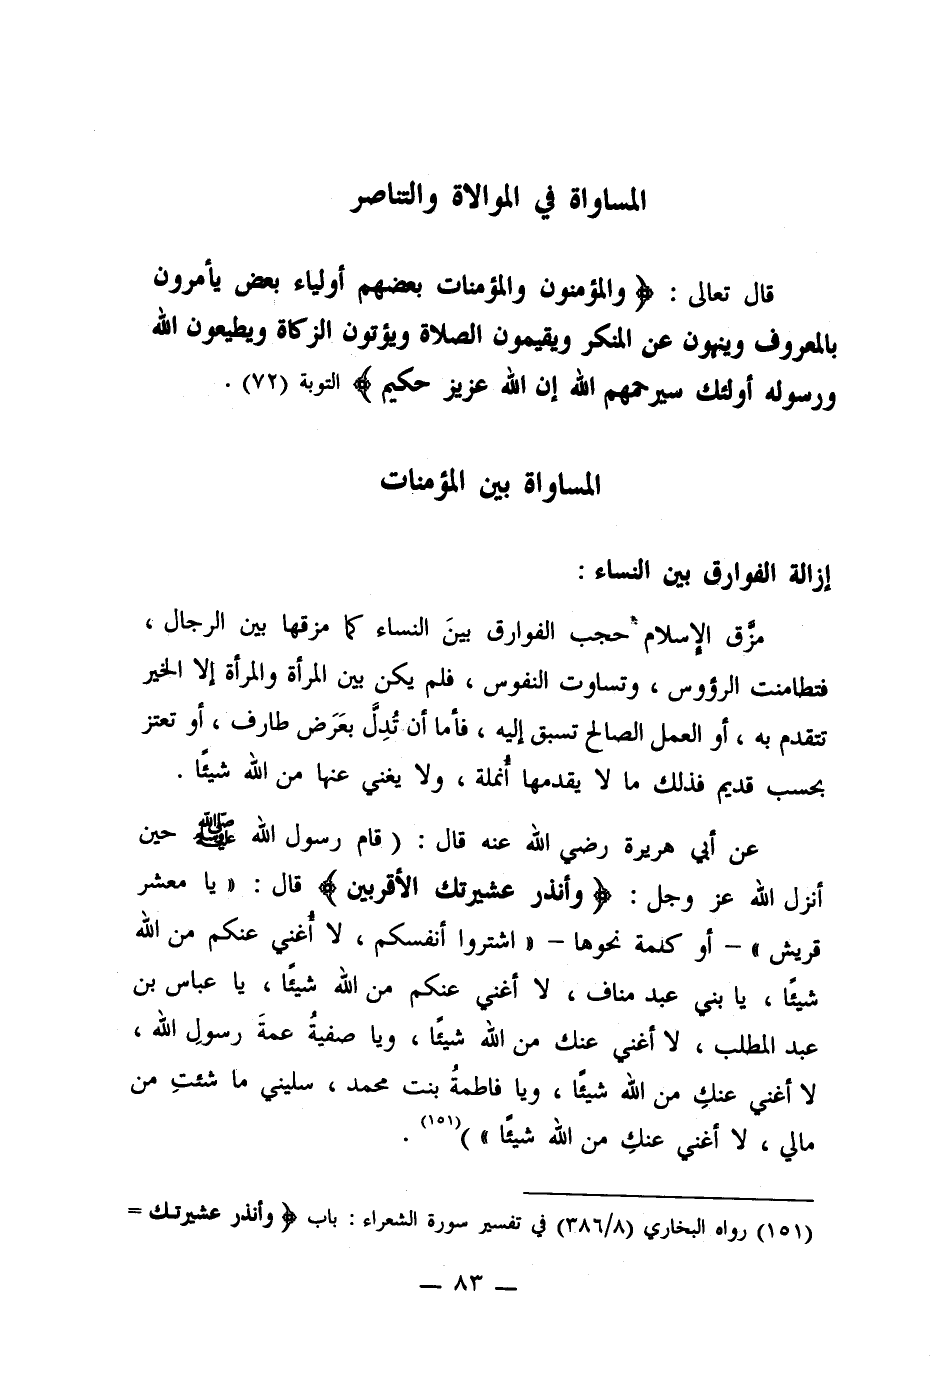 المساواة في الموالاة والتناصر
قال تعالى : ﴿ والمؤمنون والمؤمنات بعضهم أولياء بعض يأمرون
بالمعروف وينهون عن المنكر ويقيمون الصلاة ويؤتون الزكاة ويطيعون الله
ورسوله أولئك سيرحمهم الله إن الله عزيز حكيم ﴾ التوبة (٧٢) .
المساواة بين المؤمنات
إزالة الفوارق بين النساء :
مزَّق الإسلام حجب الفوارق بينَ النساء كما مزقها بين الرجال ،
فتطامنت الرؤوس ، وتساوت النفوس ، فلم يكن بين المرأة والمرأة إلا الخير
تتقدم به ، أو العمل الصالح تسبق إليه ، فأما أن تُدِلَّ بعَرَض طارف ، أو تعتز
بحسب قديم فذلك ما لا يقدمها أُنملة ، ولا يغني عنها من الله شيئًا .
عن أبي هريرة رضي الله عنه قال : ( قام رسول الله ﷺ حين
أنزل الله عز وجل : ﴿ وأنذر عشيرتك الأقربين ﴾ قال : « يا معشر
قريش » – أو كلمة نحوها – « اشتروا أنفسكم ، لا أُغني عنكم من الله
شيئًا ، يا بني عبد مناف ، لا أغني عنكم من الله شيئًا ، يا عباس بن
عبد المطلب ، لا أغني عنك من الله شيئًا ، ويا صفيةُ عمةَ رسولِ الله ،
لا أغني عنكِ من الله شيئًا ، ويا فاطمةُ بنت محمد ، سليني ما شئتِ من
مالي ، لا أغني عنكِ من الله شيئًا » )(١٥١) .
(١٥١) رواه البخاري (٣٨٦/٨) في تفسير سورة الشعراء : باب ﴿ وأنذر عشيرتك =
— ٨٣ —